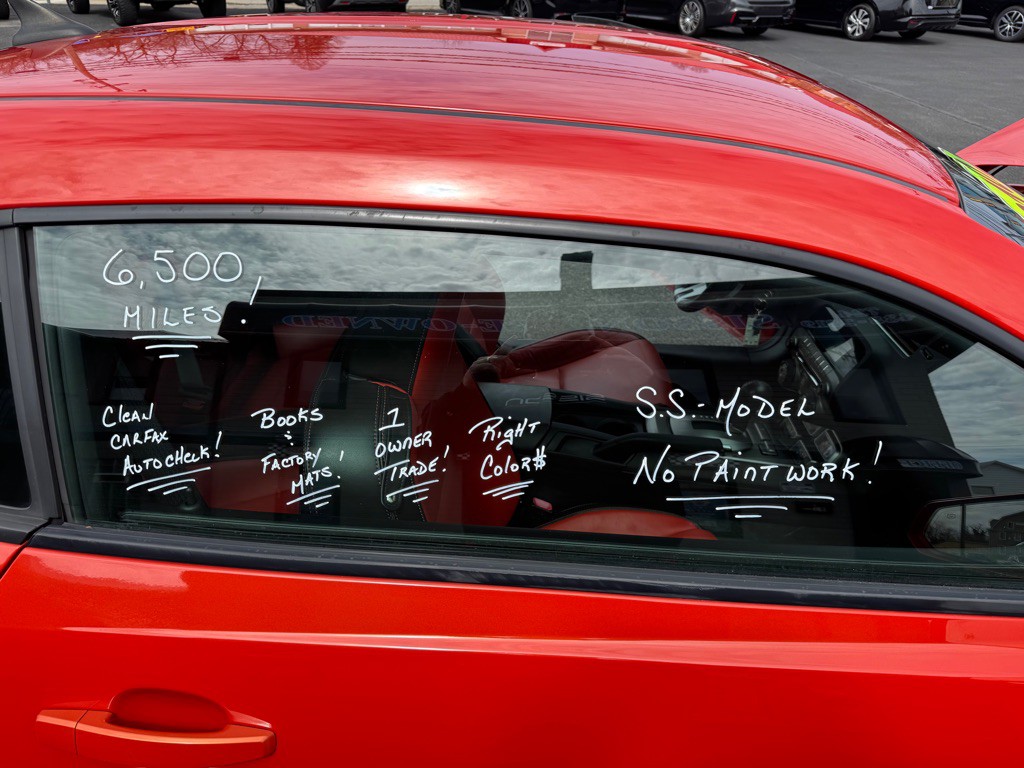 6,500
MILES!
CLEAN
CARFAX
AUTOCHECK!
BOOKS
&
FACTORY
MATS!
1
OWNER
TRADE!
RIGHT
COLOR$
S.S.-MODEL
NO PAINTWORK!